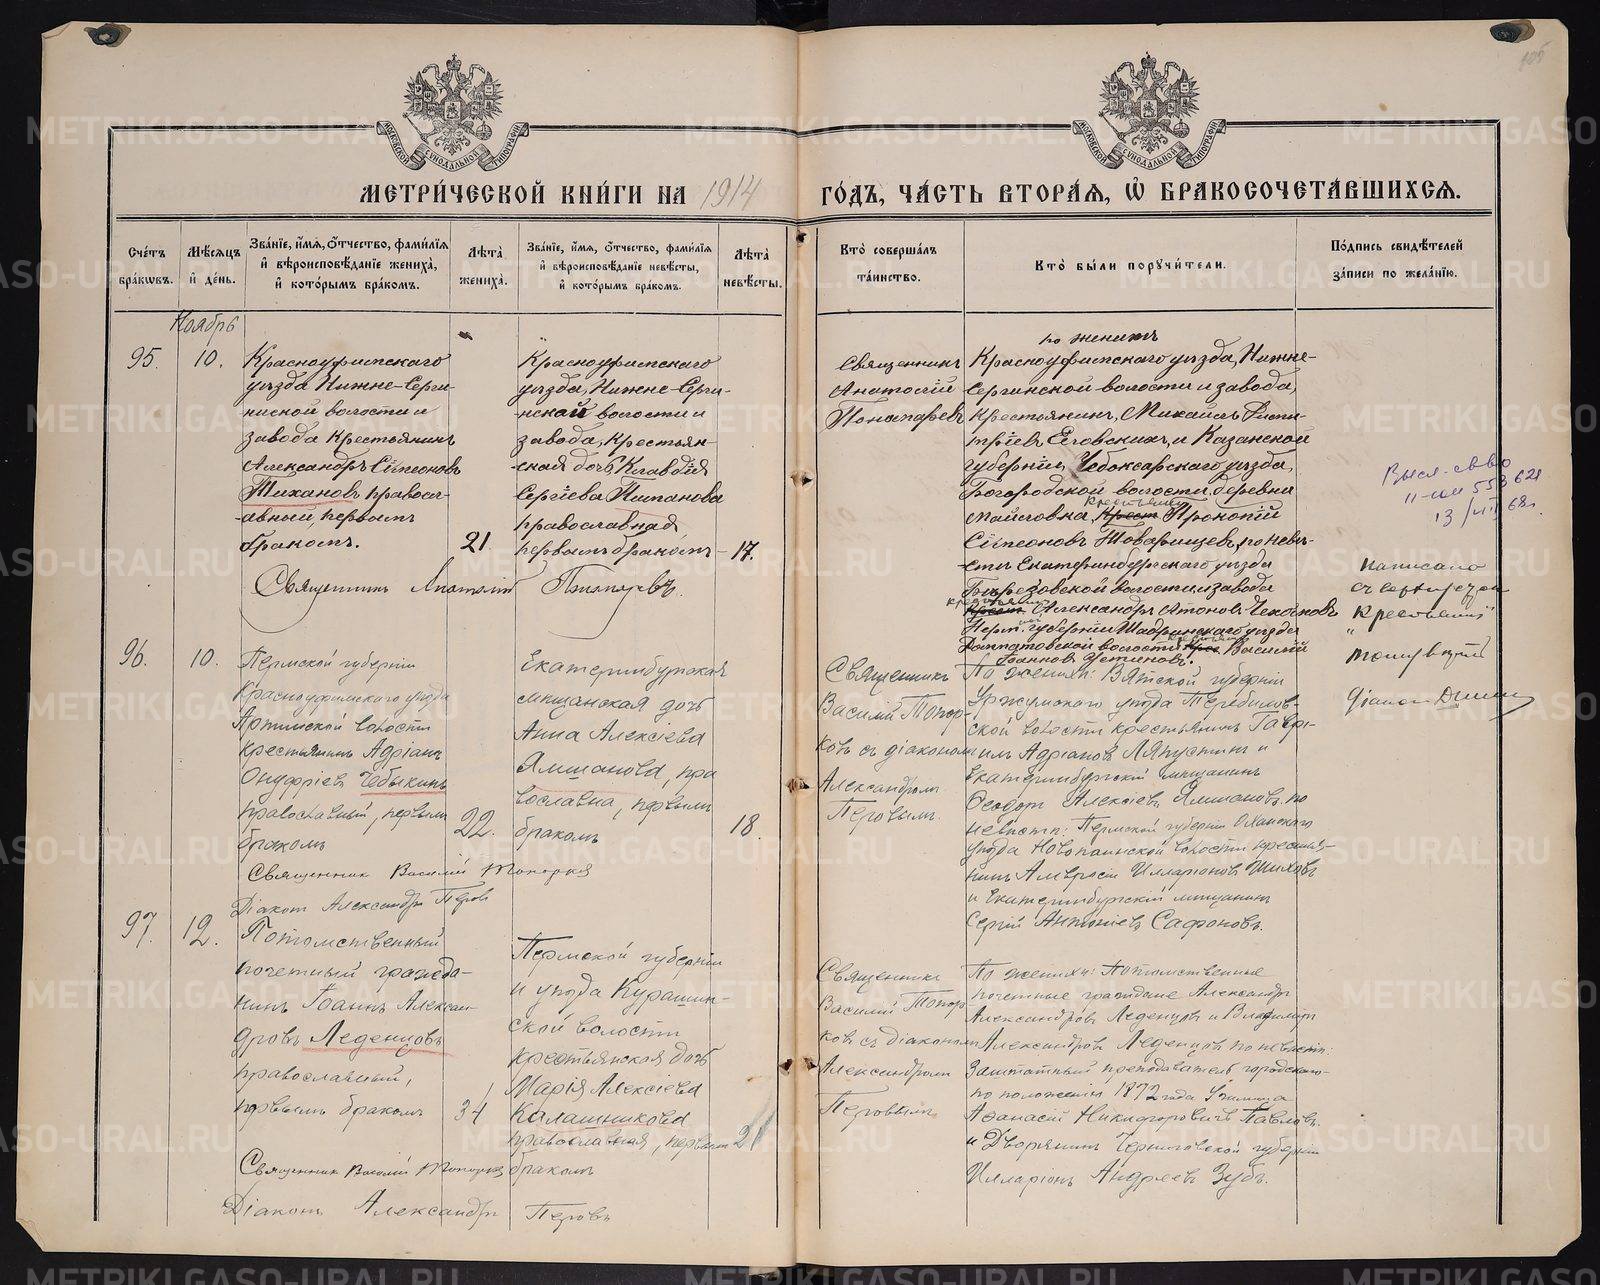 105
МОСКОВСКОЙ СѴНОДАЛЬНОЙ ТИПОГРАФІИ
МОСКОВСКОЙ СѴНОДАЛЬНОЙ ТИПОГРАФІИ
МЕТРИ́ЧЕСКОЙ КНИ́ГИ НА 1914
ГО́ДЪ, ЧА́СТЬ ВТОРА́Я, Ѽ БРАКОСОЧЕТА́ВШИХСЯ.
Сче́тъ
бра́кѡвъ.
Мѣ́сяцъ
и҆ де́нь.
Зва́нїе, и҆́мя, ѻ҆́тчество, фами́лїя
и҆ вѣроисповѣ́данїе жениха̀,
и҆ кото́рымъ бра́комъ.
Лѣта̀
жениха̀.
Зва́нїе, и҆́мя, ѻ҆́тчество, фами́лїя
и҆ вѣроисповѣ́данїе невѣ́сты,
и҆ кото́рымъ бра́комъ.
Лѣта̀
невѣ́сты.
Кто̀ соверша́лъ
та́инство.
Кто̀ бы́ли порꙋчи́тели.
По́дпись свидѣ́телей
за́писи по жела́нїю.
Ноябрь
95.
10.
Красноуфимскаго
уѣзда Нижне-Серги-
нской волости и
завода крестьянинъ
Александръ Сѵмеоновъ
Тихановъ, правосл-
авный, первымъ
бракомъ.
21.
Красноуфимскаго
уѣзда, Нижне-Серги-
нской волости и
завода, крестьян-
ская дочь Клавдія
Сергіева Пипанова
православная
первымъ бракомъ
17.
Священникъ Анатолій Понатаревъ.
Священникъ
Анатолій
Понатаревъ
по женихѣ
Красноуфимскаго уѣзда, Нижне-
Сергинской волости и завода,
крестьянинъ, Михаилъ Дими-
тріевъ Еговскихъ, и Казанской
губерніи, Чебоксарскаго уѣзда,
Богородской волости, деревни
Майсловка, крестьянинъ Прокопій
Сѵмеоновъ Товарищевъ, по невѣ-
стѣ Екатеринбургскаго уѣзда
Березовской волости, и завода
крестьянинъ Александръ Антоновъ Чекасковъ
Перм. губерніи Шадринскаго уѣзда
волости Василій
Іоанновъ Устиновъ.
13/VII 68г.
написано
"крестьянинъ"
96.
10.
Пермской губерніи
Красноуфимскаго уѣзда
Артинской волости
крестьянинъ Адріанъ
Онуфріевъ Чебыкинъ
православный, первымъ
бракомъ
22.
Екатеринбургская
мѣщанская дочь
Анна Алексіева
Ямшанова, пра
вославна, первымъ
бракомъ
18.
Священникъ Василій Топорковъ
Діаконъ Александръ Перовъ
Священникъ
Василій Топор-
ковъ съ діакономъ
Александромъ
Перовымъ.
По женихѣ: Вятской губерніи
Уржумскаго уѣзда Теребилов-
ской волости крестьянинъ Гаврі-
илъ Адріановъ Ляпустинъ и
Екатеринбургскій мѣщанинъ
Ѳеодоръ Алексіевъ Ямшановъ. по
невѣстѣ: Пермской губерніи Оханскаго
уѣзда Новопаинской волости крестья-
нинъ Амвросій Илларіоновъ Шиховъ
и Екатеринбургскій мѣщанинъ
Сергій Антоніевъ Сафоновъ.
97.
12.
Потомственный
почетный гражда-
нинъ Іоаннъ Александ-
ровъ Леденцовъ
православный,
первымъ бракомъ
34
Пермской губерніи
и уѣзда Курашим-
ской волости
крестьянская дочь
Марія Алексіева
Калашникова
православная, первымъ
бракомъ
21
Священникъ Василій Топорковъ
Діаконъ Александръ Перовъ
Священникъ
Василій Топор
ковъ съ діакономъ
Александромъ
Перовымъ
По женихѣ: Потомственные
почетные граждане Александръ
Александровъ Леденцовъ и Владиміръ
Александровъ Леденцовъ по невѣстѣ:
Заштатный преподаватель городскаго
по положенію 1872 года Училища
Аѳанасій Никифоровичъ Павловъ.
и Дворянинъ Черниговской губерніи
Илларіонъ Андреевъ Зубъ.
METRIKI.GASO-URAL.RU